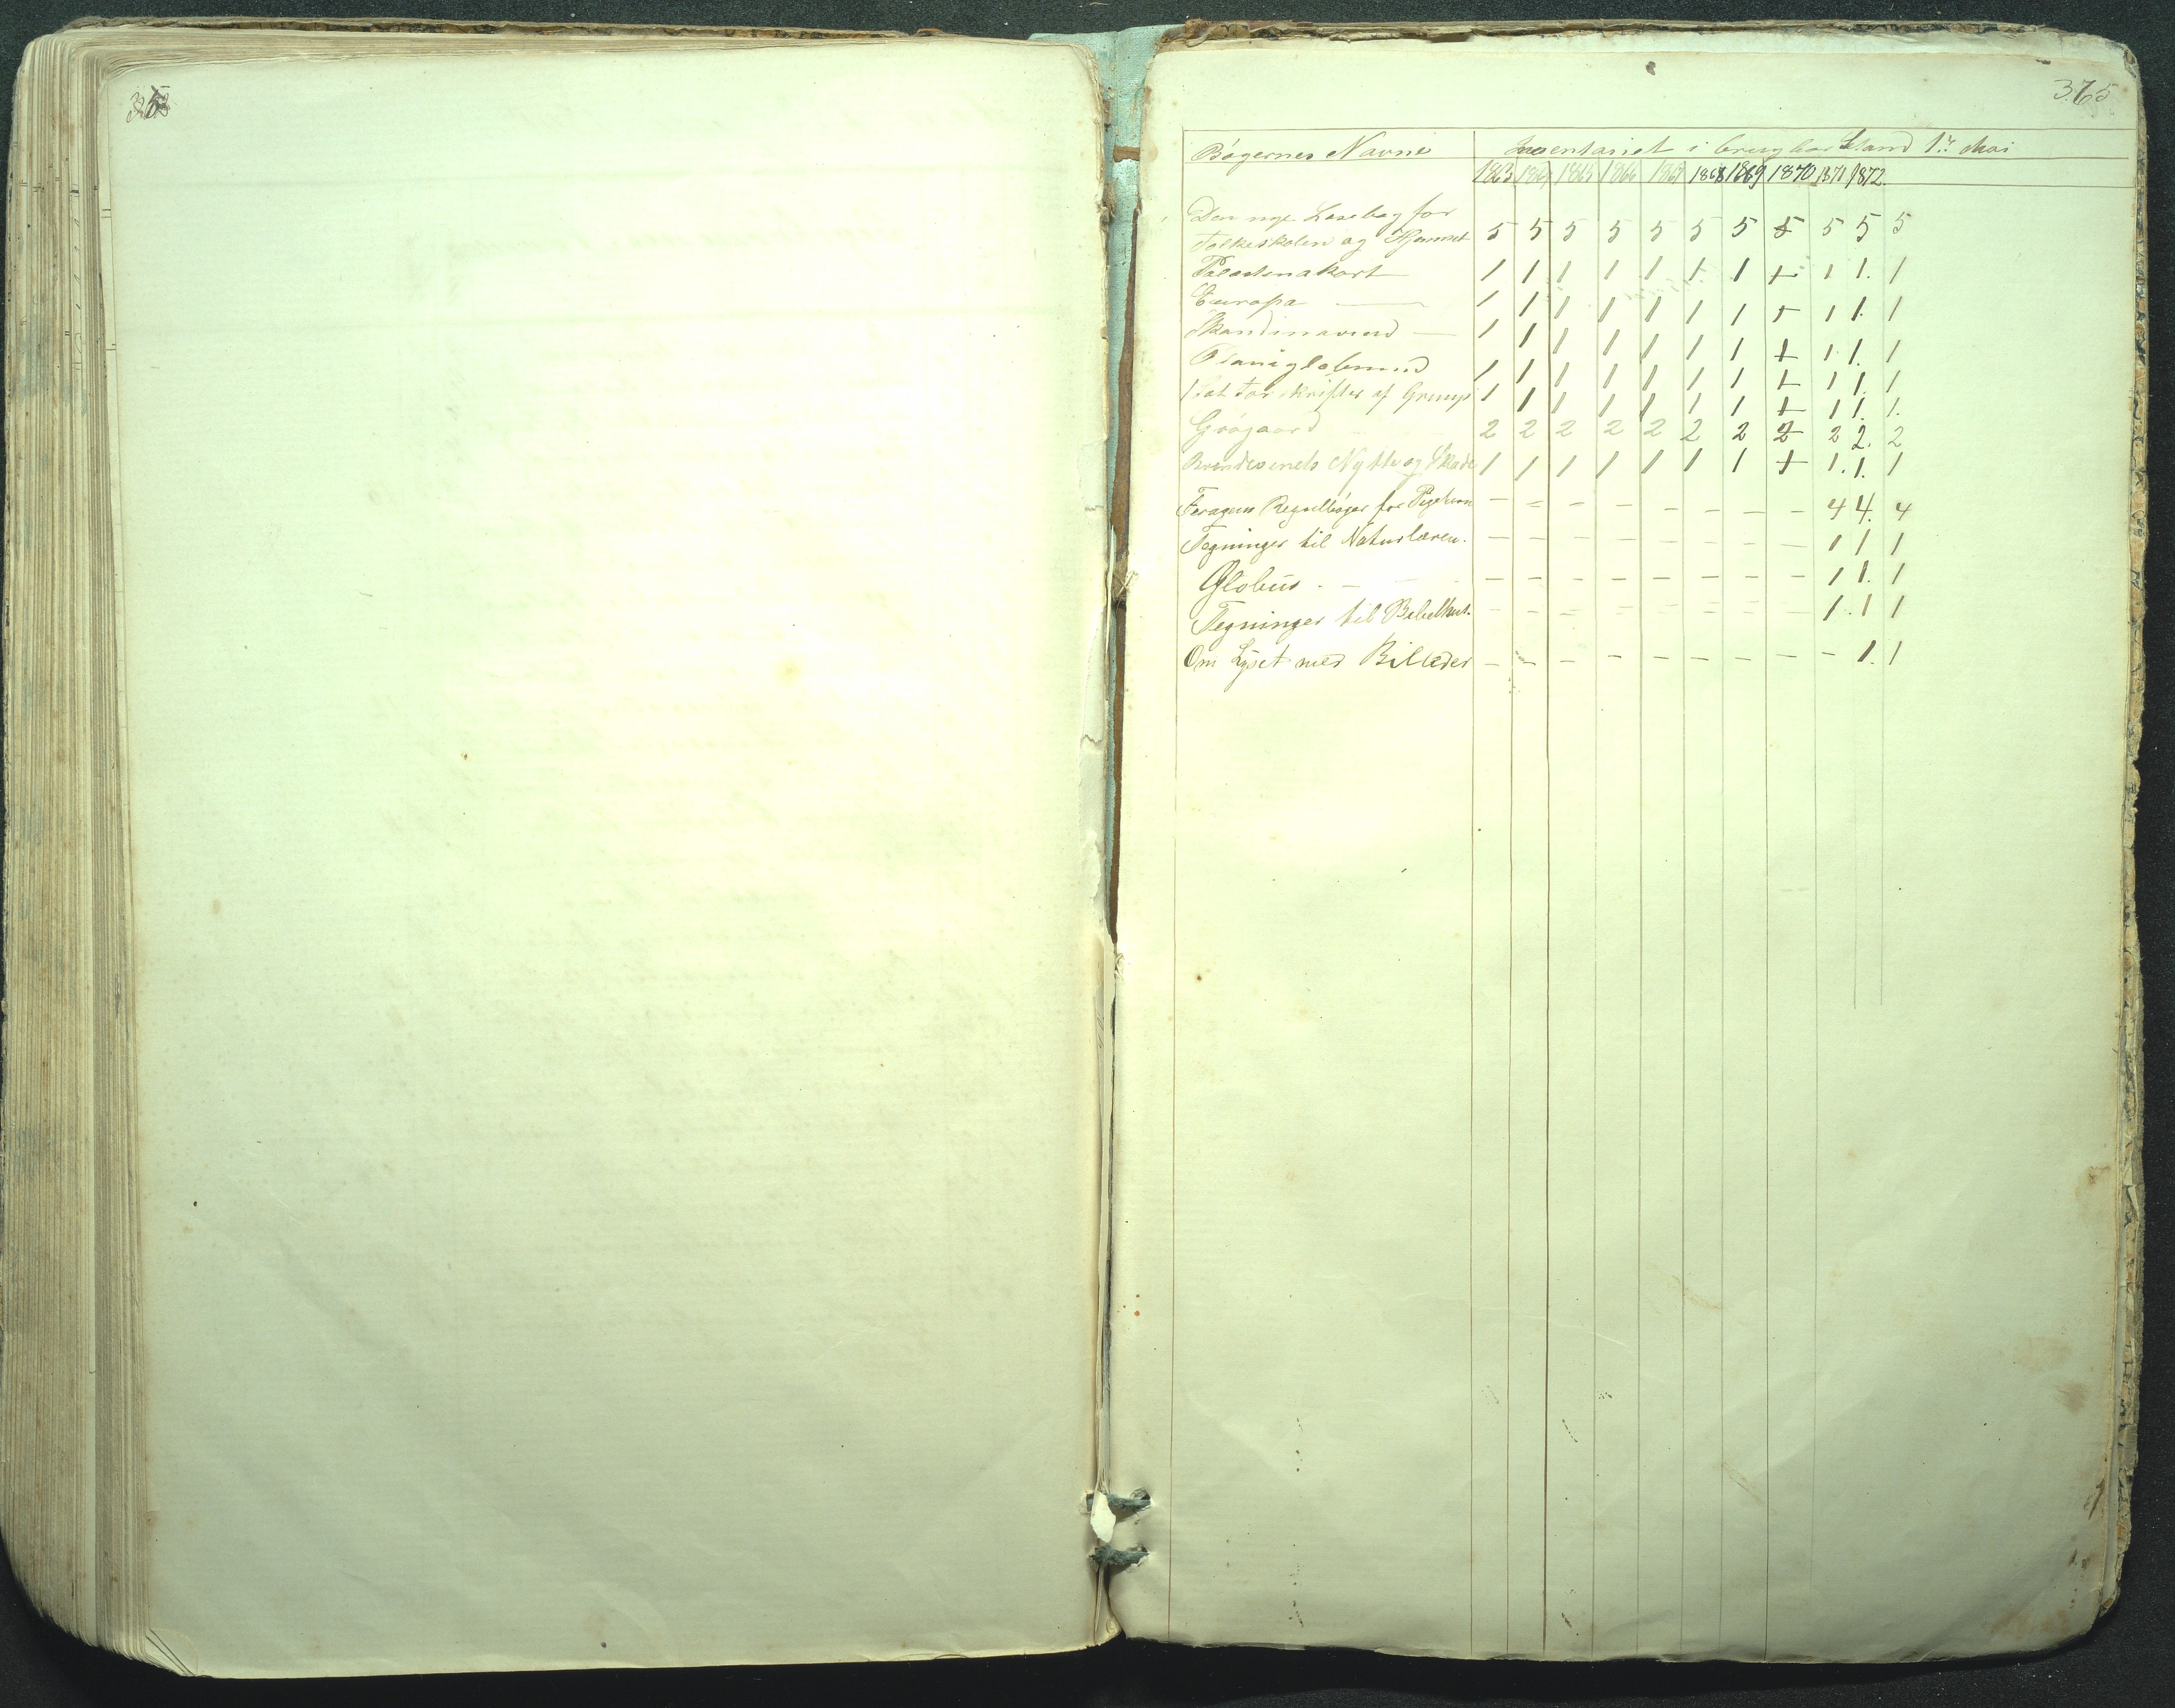 375
Bøgernes Navne Inventariet i brugbar Stand 1ste Mai
1863 1864 1865 1866 1867 1868 1869 1870 1871 1872.
Den nye Læsebog for
Folkeskolen og Hjemmet 5 5 5 5 5 5 5 5 5 5 5
Palæstinakart 1 1 1 1 1 1 1 1 1 1. 1
Europa — 1 1 1 1 1 1 1 1 1 1. 1
Skandinavien — 1 1 1 1 1 1 1 1 1. 1. 1
Planiglobium 1 1 1 1 1 1 1 1 1 1. 1
1 Sæt Forskrifter af 1 1 1 1 1 1 1 1 1 1. 1.
Grøgaard 2 2 2 2 2 2 2 2 2 2. 2
Brændevinets Nytte og Skade 1 1 1 1 1 1 1 1 1. 1. 1
Regnebøger for Pigebørn — — — — — — — — 4 4. 4
Tegninger til Naturlæren. — — — — — — — — 1 1 1
Globus. — — — — — — — — — 1 1. 1
Tegninger til Bibelhist. — — — — — — — — 1. 1 1
Om Lyset med Billeder — — — — — — — — — 1. 1